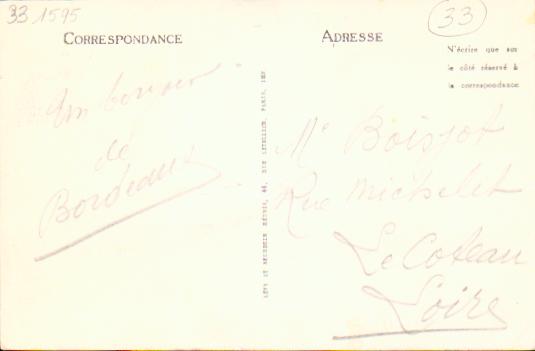 33 1595
33
CORRESPONDANCE
ADRESSE
N'écrire que sur
le côté réservé à
la correspondance
Un bonjour
de
Bordeaux
LÉVY ET NEURDEIN RÉUNIS, 44, RUE LETELLIER, PARIS, IMP
Me Boisjot
Rue Michelet
Le Coteau
Loire